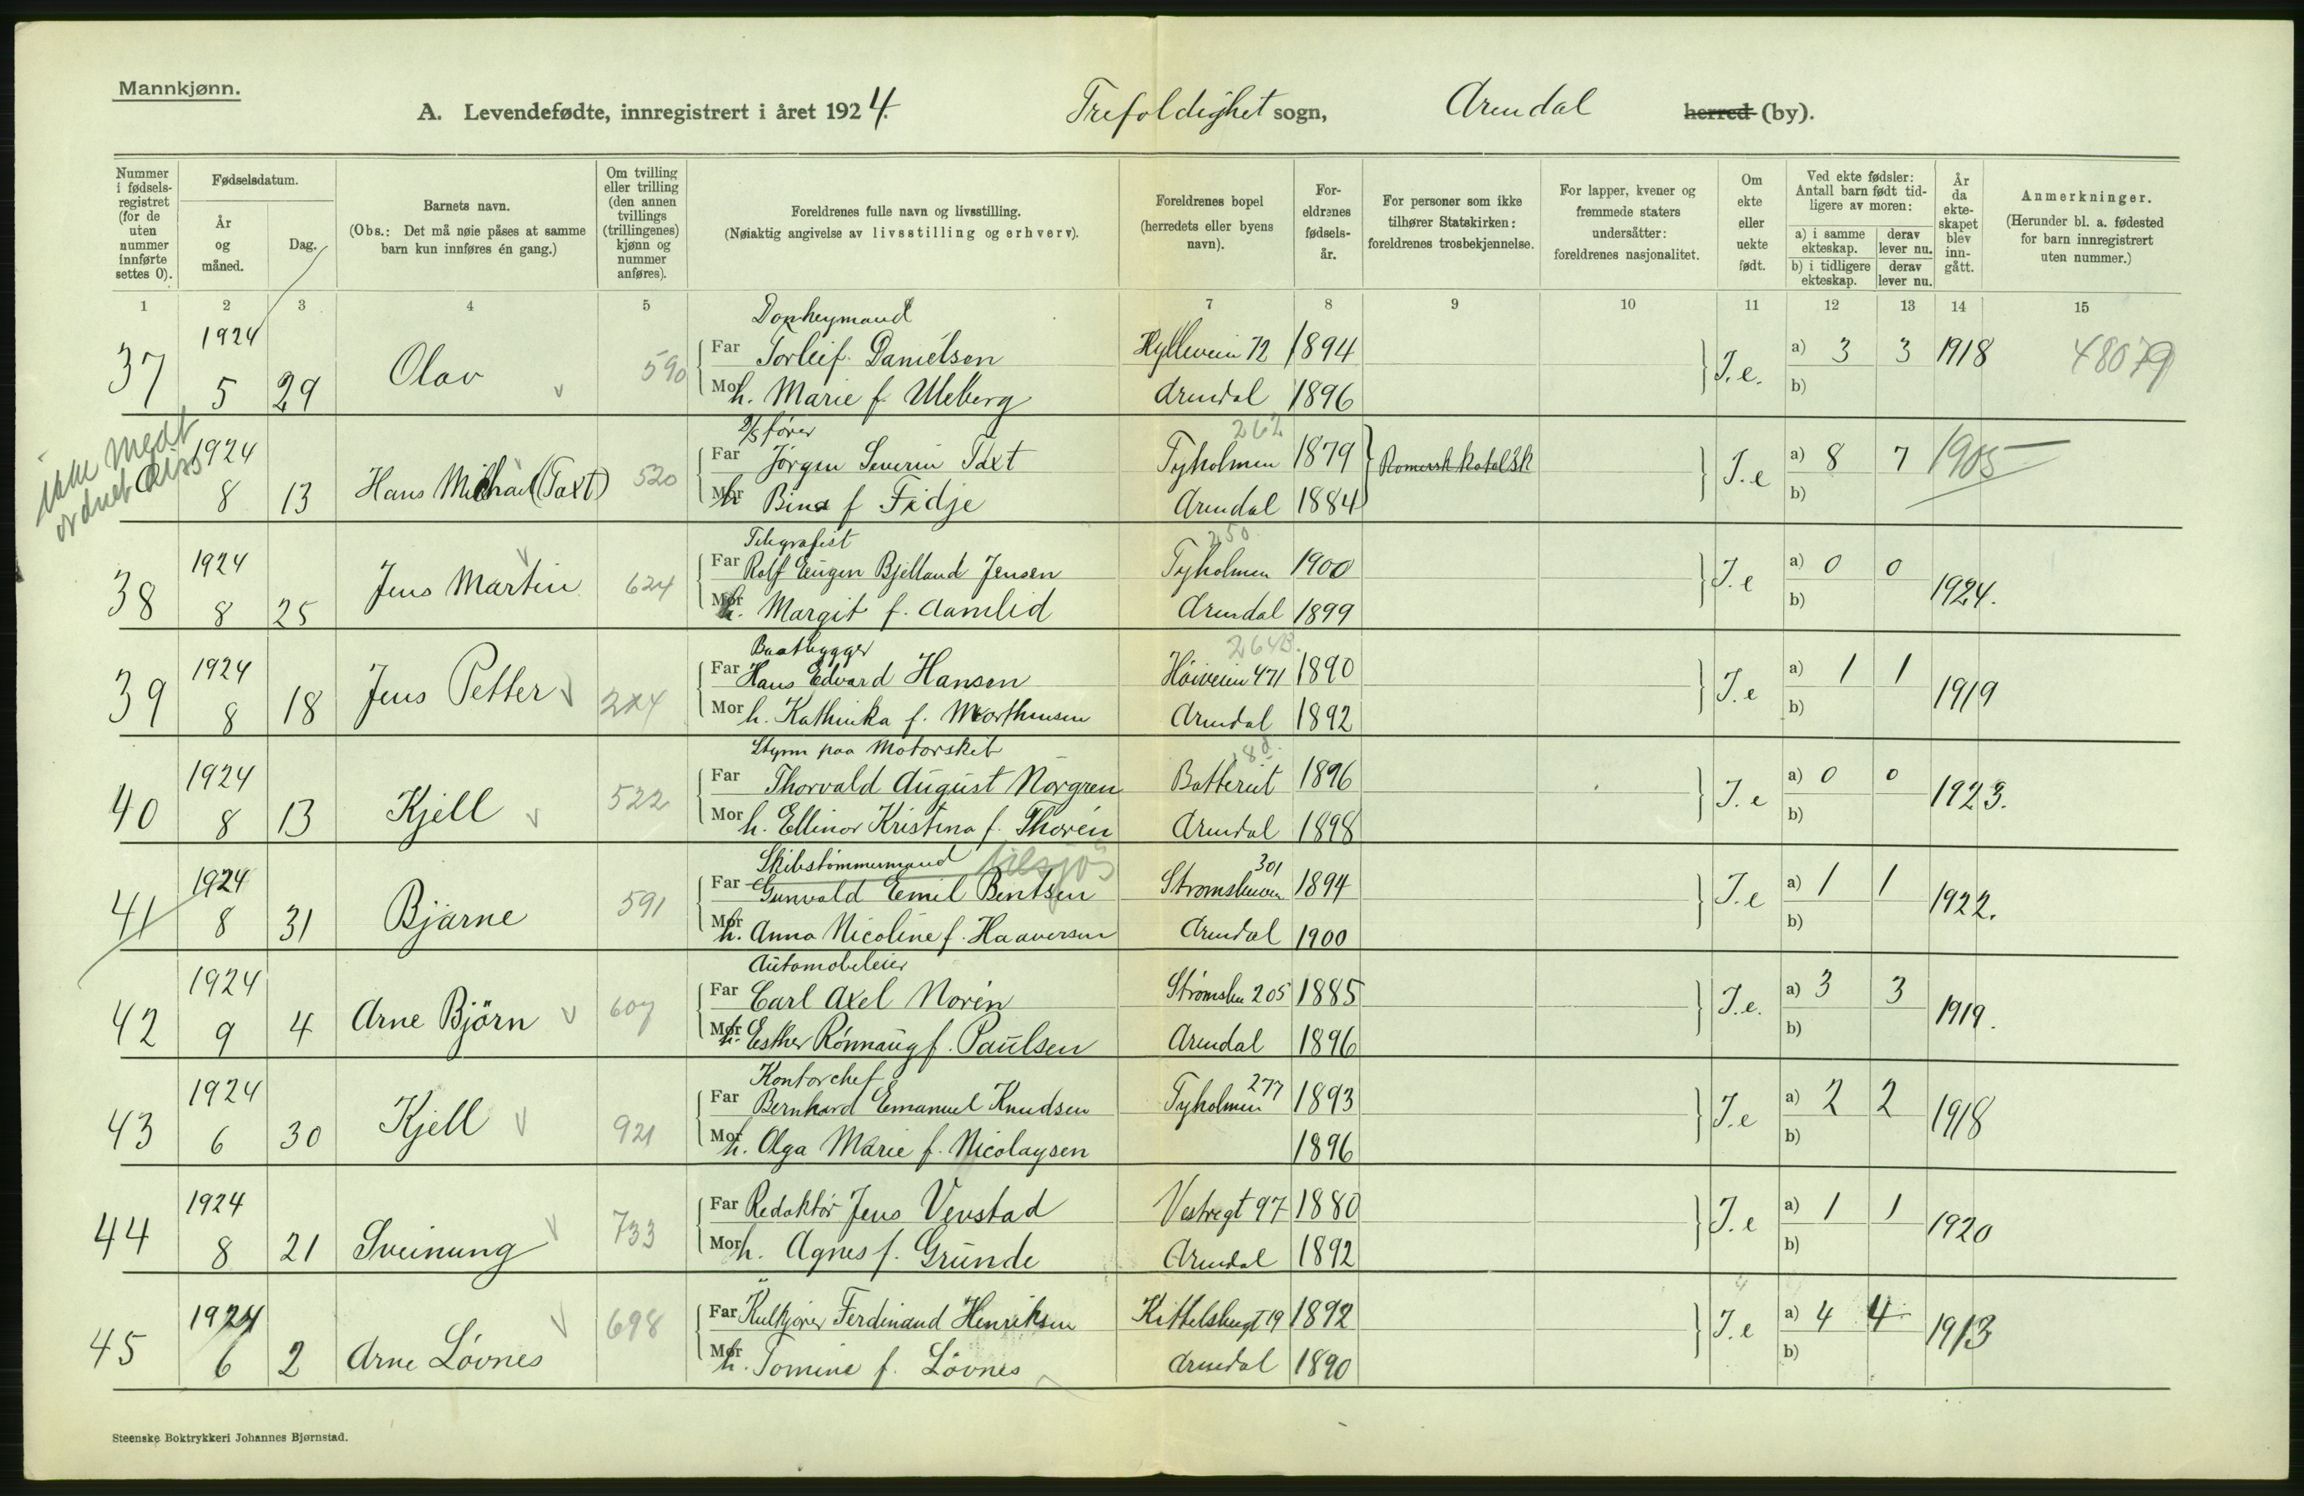 Mannkjønn.
A. Levendefødte, innregistrert i året 1924. Trefoldighet sogn, Arendal herred (by).
Nummer i fødsels-registret (for de uten nummer innførte settes 0).
Fødselsdatum.
År og måned.
Dag.
Barnets navn.
(Obs.: Det må nøie påses at samme barn kun innføres én gang.)
Om tvilling eller trilling (den annen tvillings (trillingenes) kjønn og nummer anføres).
Foreldrenes fulle navn og livsstilling.
(Nøiaktig angivelse av livsstilling og erhverv).
Foreldrenes bopel (herredets eller byens navn).
For-eldrenes fødsels-år.
For personer som ikke tilhører Statskirken: foreldrenes trosbekjennelse.
For lapper, kvener og fremmede staters undersåtter: foreldrenes nasjonalitet.
Om ekte eller uekte født.
Ved ekte fødsler: Antall barn født tid-ligere av moren:
a) i samme ekteskap.
derav lever nu.
b) i tidligere ekteskap.
derav lever nu.
År da ekte-skapet blev inn-gått.
Anmerkninger.
(Herunder bl. a. fødested for barn innregistrert uten nummer.)
1 2 3 4 5 7 8 9 10 11 12 13 14 15
Donkeymand
37 1924 5 29 Olav 590 Far Torleif Danielsen Hylleveien 72 1894 I.e. a) 3 3 1918 48079
Mor h. Marie f. Uleberg Arendal 1896 b)
ikke medt
ordnet
D/S fører
1924 8 13 Hans Michael (Taxt) 520 Far Jørgen Severin Taxt 262 Tyholmen 1879 Romersk katolsk I.e a) 8 7 1905
Mor h Bina f Fidje Arendal 1884 b)
Telegrafist
38 1924 8 25 Jens Martin 624 Far Rolf Eugen Bjelland Jensen 250 Tyholmen 1900 I.e a) 0 0 1924.
Mor h. Margit f. Aamlid Arendal 1899 b)
Baatbygger
39 1924 8 18 Jens Petter Far Hans Edvard Hansen 264B. Høiveien 471 1890 I.e a) 1 1 1919
Mor h. Kathinka f. Morthensen Arendal 1892 b)
Styrm paa Motorskib
40 1924 8 13 Kjell 522 Far Thorvald August Norgren Batteriet 1896 I.e a) 0 0 1923.
Mor h. Ellinor Kristina f. Thorén Arendal 1898 b)
Skibstømmermand tilsjøs
41 1924 8 31 Bjarne 591 Far Gunvald Emil Bentsen Strømsbuveien 301 1894 I.e a) 1 1 1922.
Mor h. Anna Nicoline f. Haaversen Arendal 1900 b)
Automobileier
42 1924 9 4 Arne Bjørn 607 Far Carl Axel Norén Strømsbu 205 1885 I.e. a) 3 3 1919.
Mor h. Esther Rønnaug f. Paulsen Arendal 1896 b)
Kontorchef
43 1924 6 30 Kjell 921 Far Bernhard Emanuel Knudsen Tyholmen 277 1893 I.e a) 2 2 1918
Mor h. Olga Marie f. Nicolaysen 1896 b)
44 1924 8 21 Sveinung 733 Far Redaktør Jens Vevstad Vestregt 97 1880 I.e a) 1 1 1920
Mor h. Agnes f. Grunde Arendal 1892 b)
45 1924 6 2 Arne Løvnes 698 Far Kulkjører Ferdinand Henriksen Kittelsbugt 19 1892 I.e a) 4 4 1913
Mor h. Tomine f. Løvnes Arendal 1890 b)
Steenske Boktrykkeri Johannes Bjørnstad.